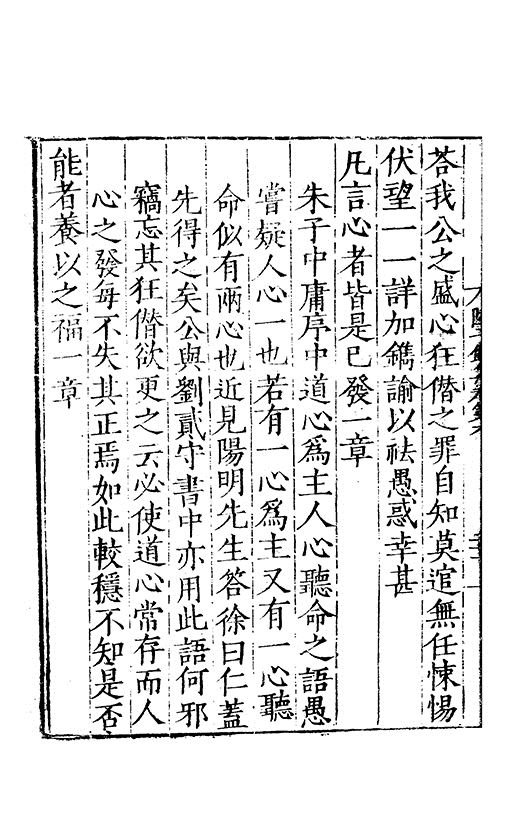 荅我公之盛心狂僣之罪自知莫逭無任悚惕
伏望一一詳加鐫諭以祛愚惑幸甚
凡言心者皆是已發一章
朱子中庸序中道心爲主人心聽命之語愚
嘗疑人心一也若有一心爲主又有一心聽
命似有兩心也近見陽明先生答徐曰仁蓋
先得之矣公與劉貳守書中亦用此語何邪
竊忘其狂僣欲更之云必使道心常存而人
心之發每不失其正焉如此較穩不知是否
能者養以之福一章